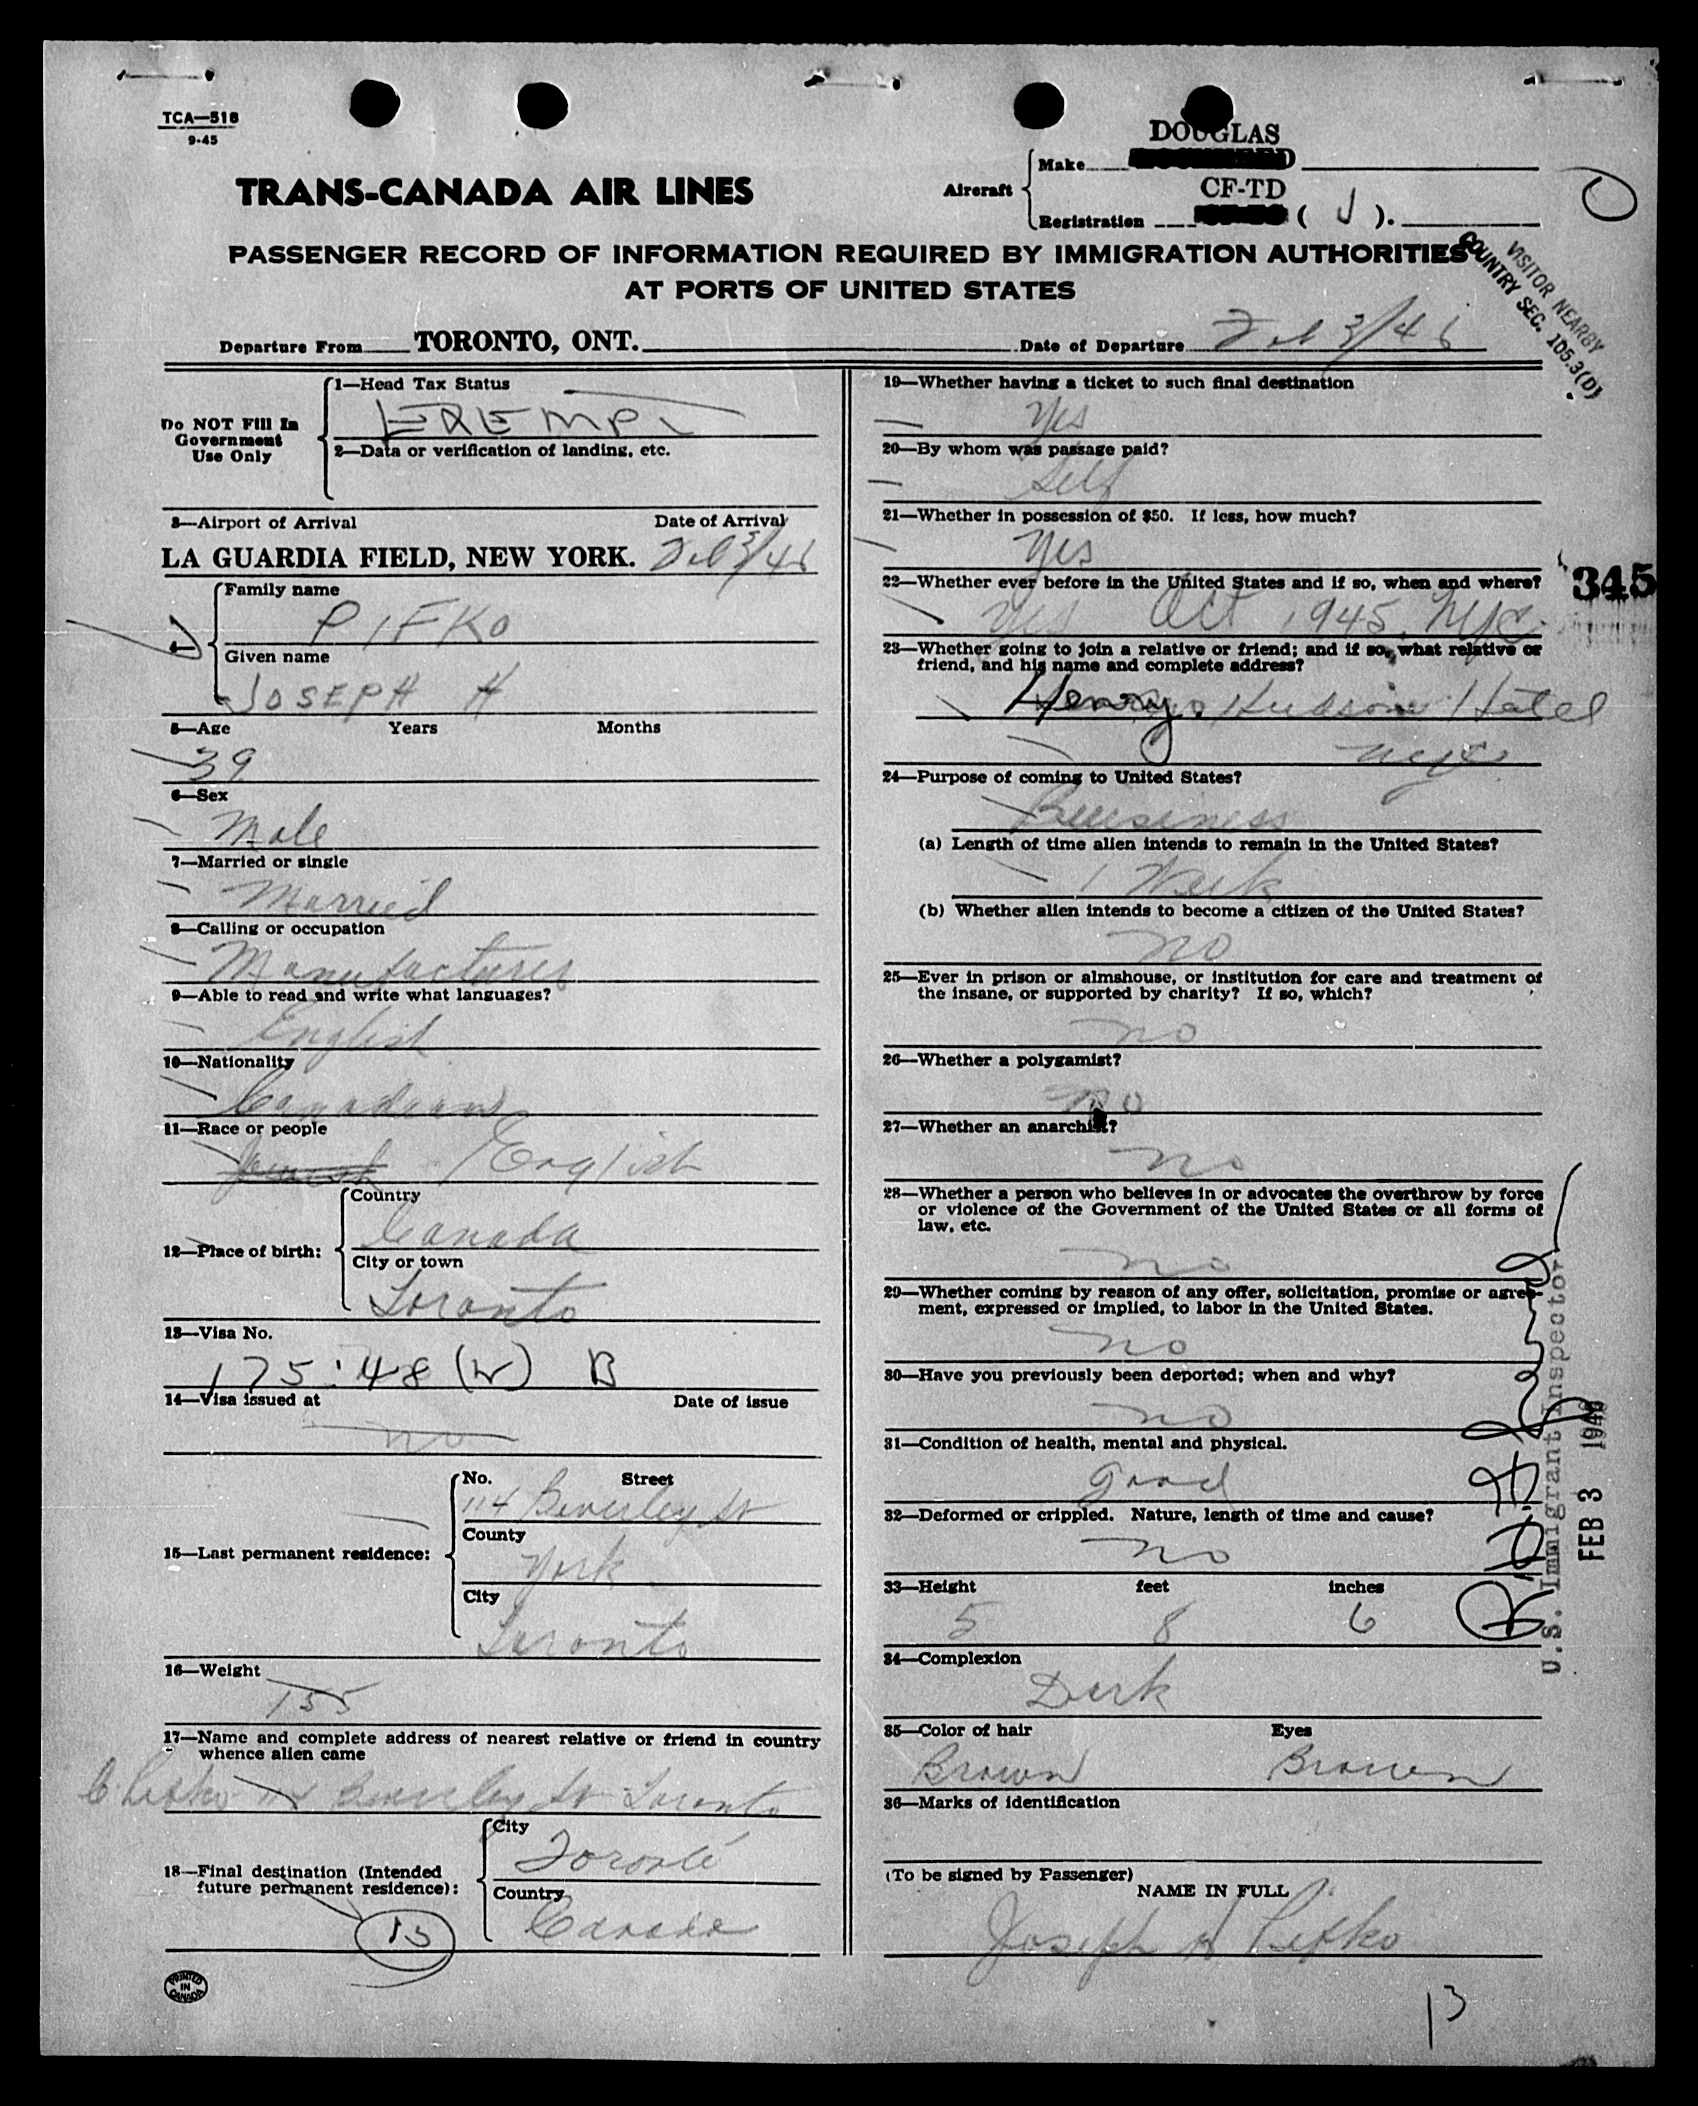 TCA—518
9-45
TRANS-CANADA AIR LINES
Aircraft
DOUGLAS
Make
CF-TD
Registration ( J ).
PASSENGER RECORD OF INFORMATION REQUIRED BY IMMIGRATION AUTHORITIES
AT PORTS OF UNITED STATES
VISITOR NEARBY
COUNTRY SEC. 105.3(D)
Departure From TORONTO, ONT. Date of Departure Feb 3/46
Do NOT Fill In
Government
Use Only
1—Head Tax Status
EXEMPT
2—Data or verification of landing, etc.
3—Airport of Arrival Date of Arrival
LA GUARDIA FIELD, NEW YORK. Feb 3/46
Family name
PIFKO
Given name
JOSEPH H
5—Age Years Months
39
6—Sex
Male
7—Married or single
Married
8—Calling or occupation
Manufacturer
9—Able to read and write what languages?
English
10—Nationality
Canadian
11—Race or people
Jewish English
12—Place of birth:
Country
Canada
City or town
Toronto
13—Visa No.
175:48 (W) B
14—Visa issued at Date of issue
no
15—Last permanent residence:
No. Street
114 Beverley St
County
York
City
Toronto
16—Weight
155
17—Name and complete address of nearest relative or friend in country
whence alien came
C Pifko 114 Beverley St Toronto
18—Final destination (Intended
future permanent residence):
City
Toronto
Country
Canada
13
PRINTED
IN
CANADA
19—Whether having a ticket to such final destination
Yes
20—By whom was passage paid?
Self
21—Whether in possession of $50. If less, how much?
Yes
22—Whether ever before in the United States and if so, when and where?
Yes Oct 1945, NYC
345
23—Whether going to join a relative or friend; and if so, what relative or
friend, and his name and complete address?
Henry Hudson Hotel
NYC
24—Purpose of coming to United States?
Business
(a) Length of time alien intends to remain in the United States?
1 Week
(b) Whether alien intends to become a citizen of the United States?
no
25—Ever in prison or almshouse, or institution for care and treatment of
the insane, or supported by charity? If so, which?
no
26—Whether a polygamist?
no
27—Whether an anarchist?
no
28—Whether a person who believes in or advocates the overthrow by force
or violence of the Government of the United States or all forms of
law, etc.
no
29—Whether coming by reason of any offer, solicitation, promise or agree-
ment, expressed or implied, to labor in the United States.
no
30—Have you previously been deported; when and why?
no
31—Condition of health, mental and physical.
good
32—Deformed or crippled. Nature, length of time and cause?
no
33—Height feet inches
5 8 6
34—Complexion
Dark
35—Color of hair Eyes
Brown Brown
36—Marks of identification
(To be signed by Passenger)
NAME IN FULL
Joseph H Pifko
U.S. Immigrant Inspector
FEB 3 1946
13